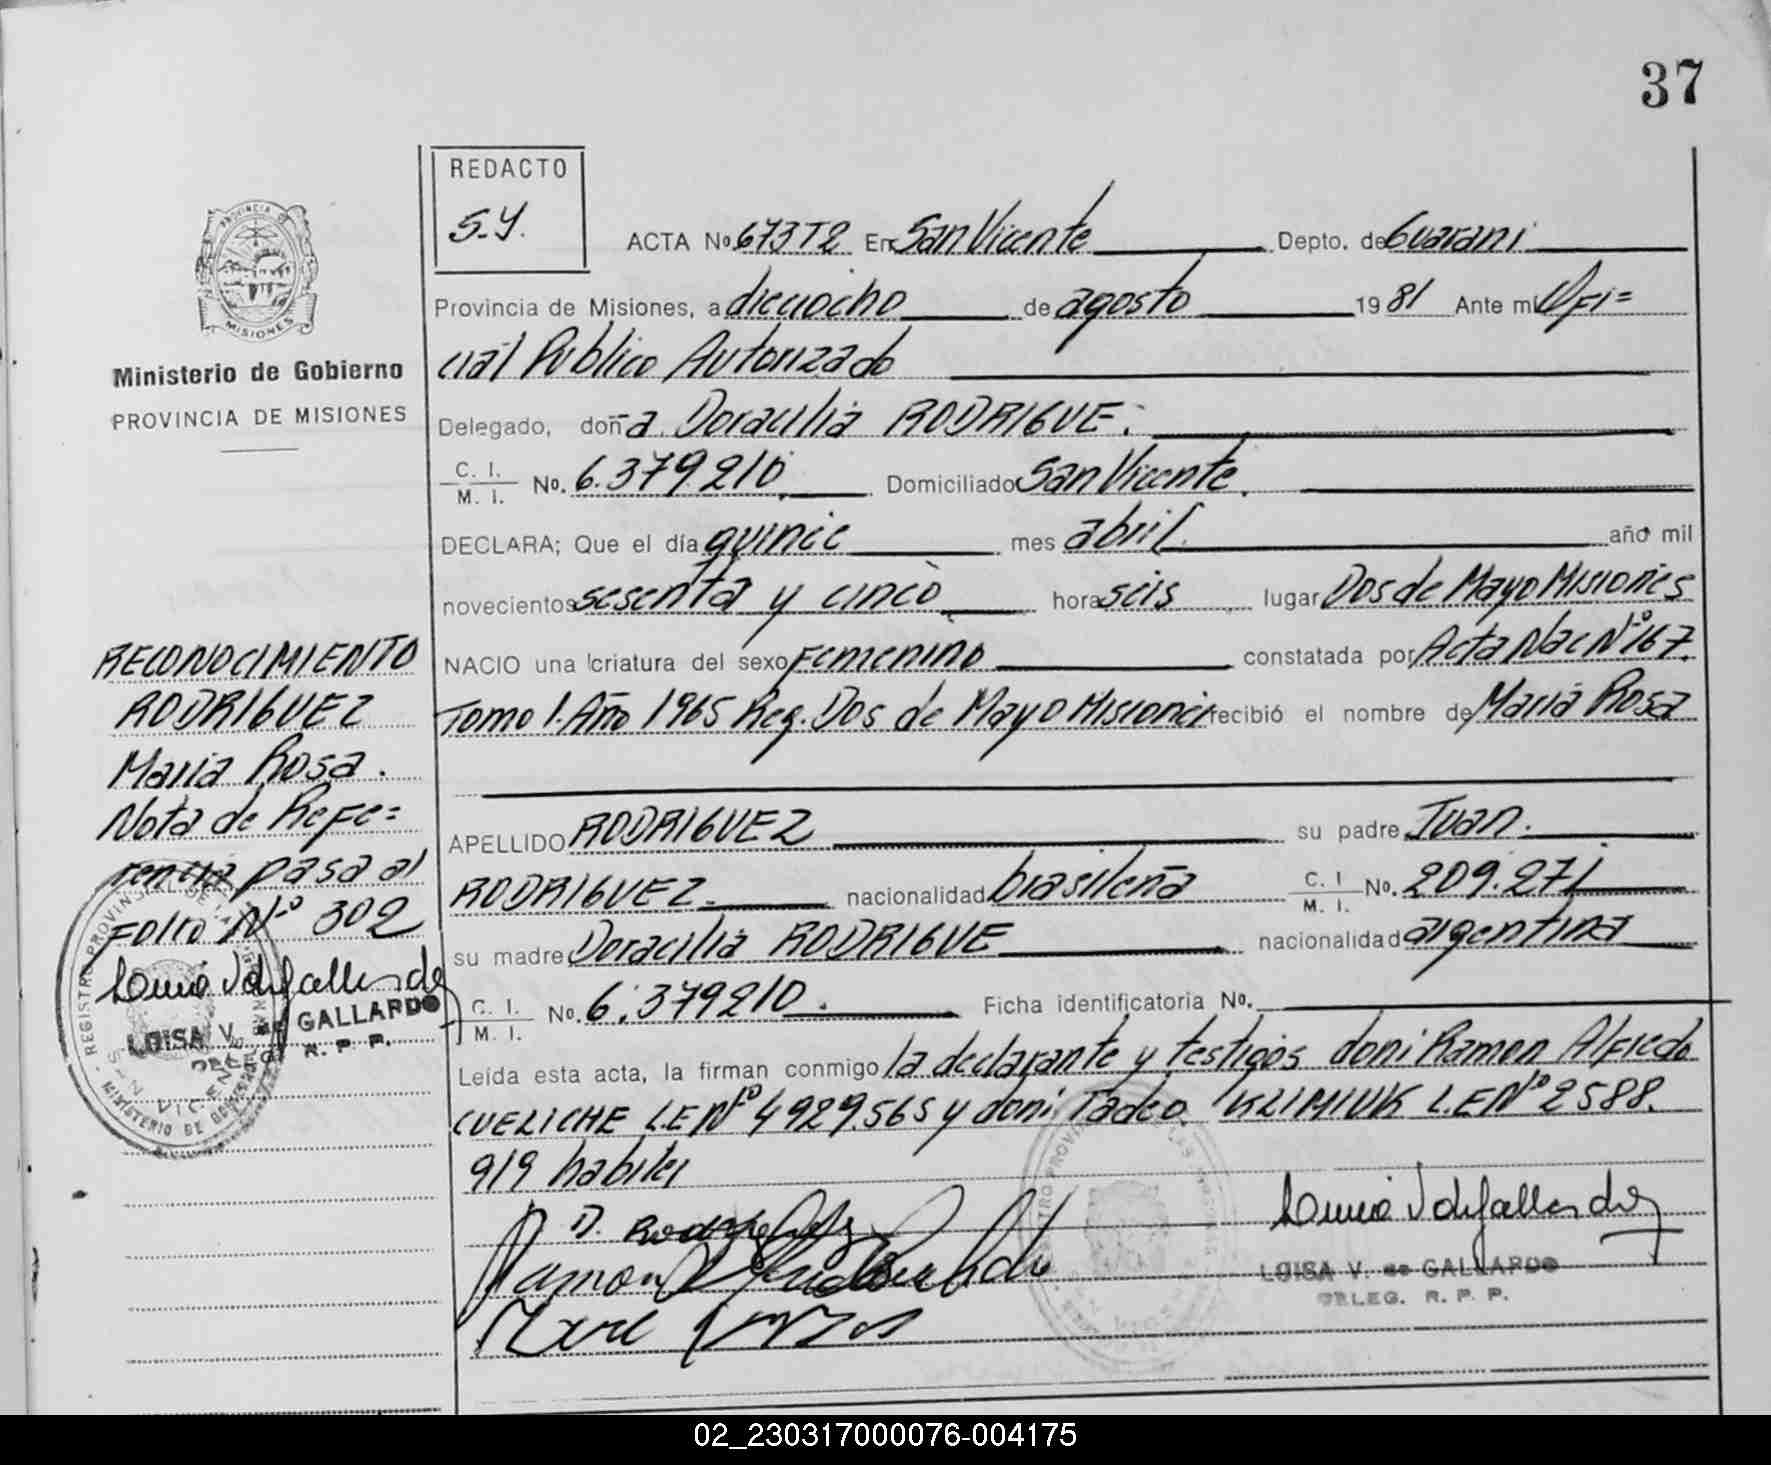 37
REDACTO
S.Y.
ACTA No. 673T2 En San Vicente Depto. de Guarani
Provincia de Misiones, a dieciocho de agosto 1981 Ante mi Ofi=
cial Publico Autorizado
Delegado, doña Doracilia RODRIGUE.
C. I.
M. I. No. 6.379.210. Domiciliado San Vicente.
DECLARA; Que el día quince mes abril. año mil
novecientos sesenta y cinco hora seis lugar Dos de Mayo Misiones
NACIO una criatura del sexo Femenino constatada por Acta Nac Nº 167.
Tomo 1. Año 1965 Reg. Dos de Mayo Misiones recibió el nombre de Maria Rosa
APELLIDO RODRIGUEZ su padre Juan.
RODRIGUEZ. nacionalidad brasileña C. I.
M. I. No. 209.271
su madre Doracilia RODRIGUE nacionalidad argentina
C. I.
M. I. No. 6.379210. Ficha identificatoria No.
Leída esta acta, la firman conmigo la declarante y testigos don: Ramon Alfredo
CUELICHE L.E Nº 4929.565 y don: Tadeo KLIMIUK L.E Nº 2588.
919 habiles
D.
Ramon
LOISA V. de GALLARDO
DELEG. R. P. P.
PROVINCIA DE
MISIONES
Ministerio de Gobierno
PROVINCIA DE MISIONES
RECONOCIMIENTO
RODRIGUEZ
Maria Rosa.
Nota de Refe=
rencia pasa al
Folio Nº 302
LOISA V. de GALLARDO
DELEG. R. P. P.
02_230317000076-004175